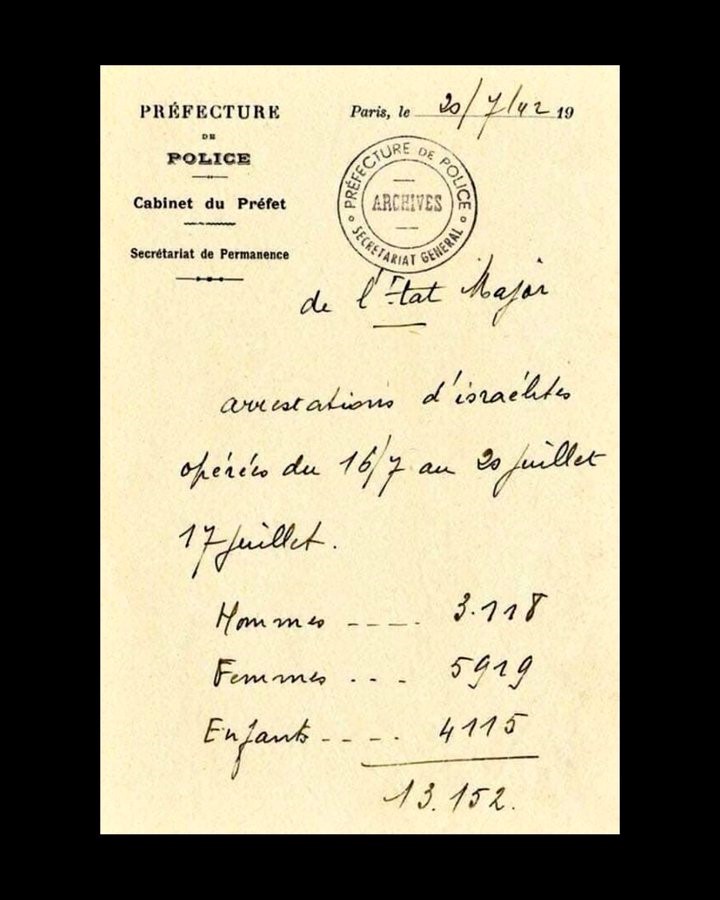 PRÉFECTURE
DE
POLICE
Cabinet du Préfet
Secrétariat de Permanence
Paris, le 20/7/42 19
PRÉFECTURE DE POLICE
ARCHIVES
SECRÉTARIAT GÉNÉRAL
de l'État Major
arrestations d'israélites
opérées du 16/7 au 20 juillet
17 juillet.
Hommes ---- 3.118
Femmes --- 5919
Enfants ---- 4115
13.152.